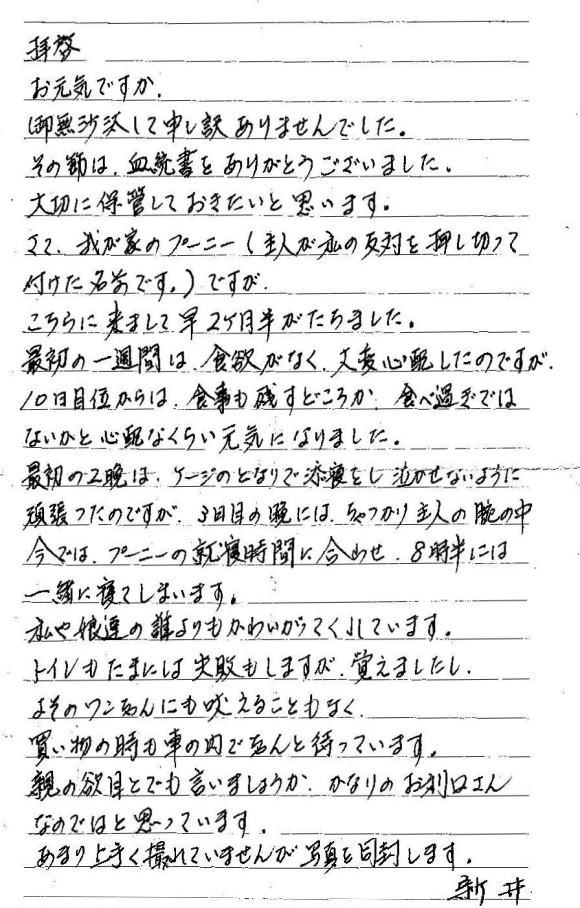 拝啓
お元気ですか.
御無沙汰して申し訳ありませんでした。
その節は、血統書をありがとうございました。
大切に保管しておきたいと思います。
さて、我が家のプーニー(主人が私の反対を押し切って
付けた名前です。)ですが、
こちらに来まして早2ケ月半がたちました。
最初の一週間は、食欲がなく、大変心配したのですが、
10日目位からは、食事も残すどころか、食べ過ぎでは
ないかと心配なくらい元気になりました。
最初の2晩は、ケージのとなりで添寝をし泣かせないように
頑張ったのですが、3日目の晩には、ちゃっかり主人の腕の中
今では、プーニーの就寝時間に合わせ、8時半には
一緒に寝てしまいます。
私や娘達の誰よりもかわいがってくれています。
トイレもたまには失敗もしますが、覚えましたし、
よそのワンちゃんにも吠えることもなく、
買い物の時も車の内でちゃんと待っています。
親の欲目とでも言いましょうか、かなりのお利口さん
なのではと思っています。
あまり上手く撮れていませんが写真を同封します。
新井